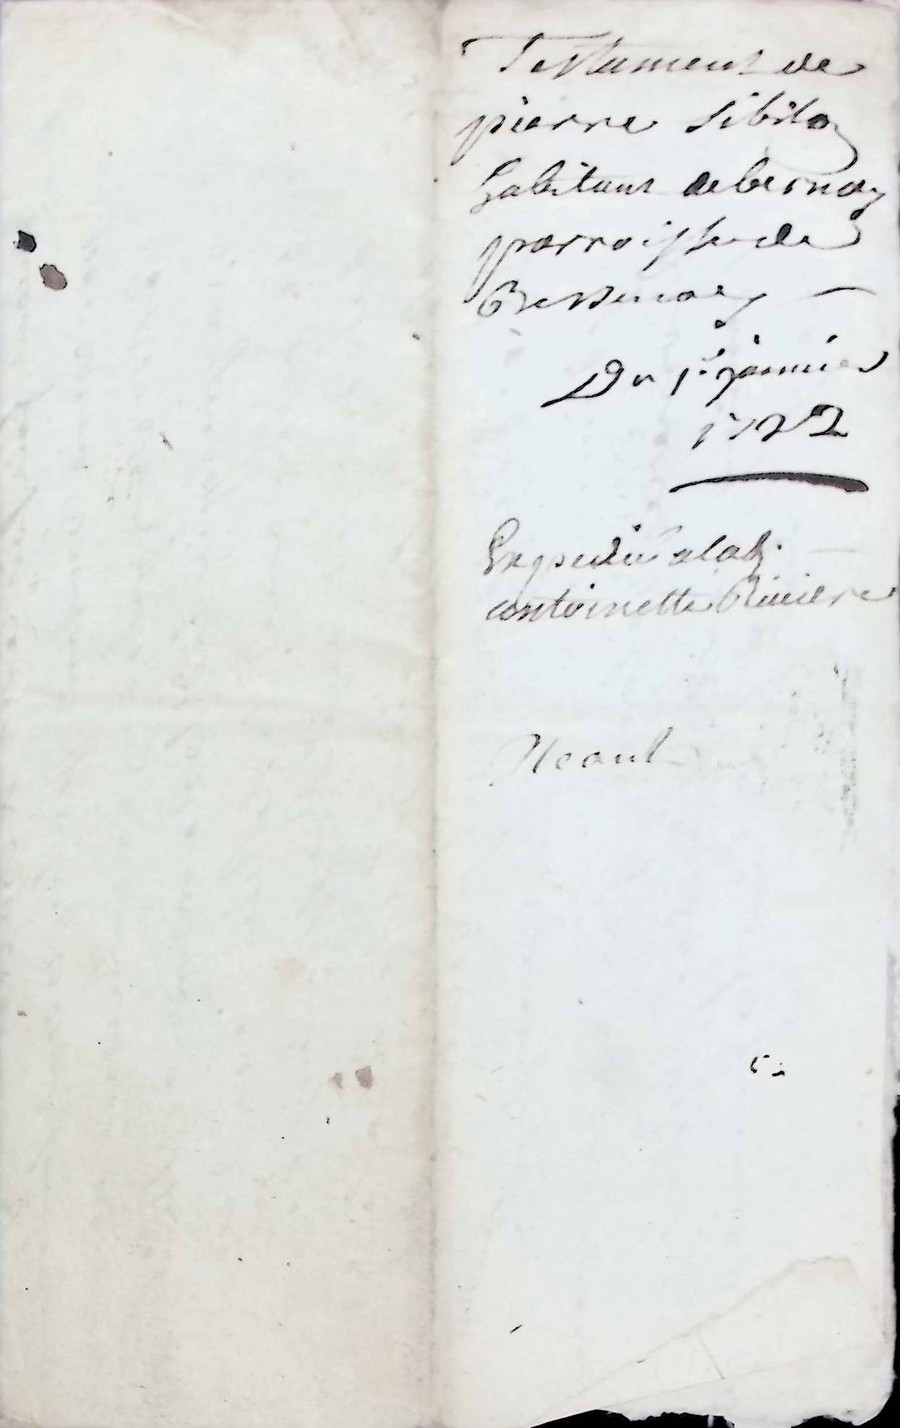 Testament de
pierre Sibila
habitant de bernay
parroisse de
Du 1er janvier
1722
Expedié a lad.
antoinette Riviere
Neant